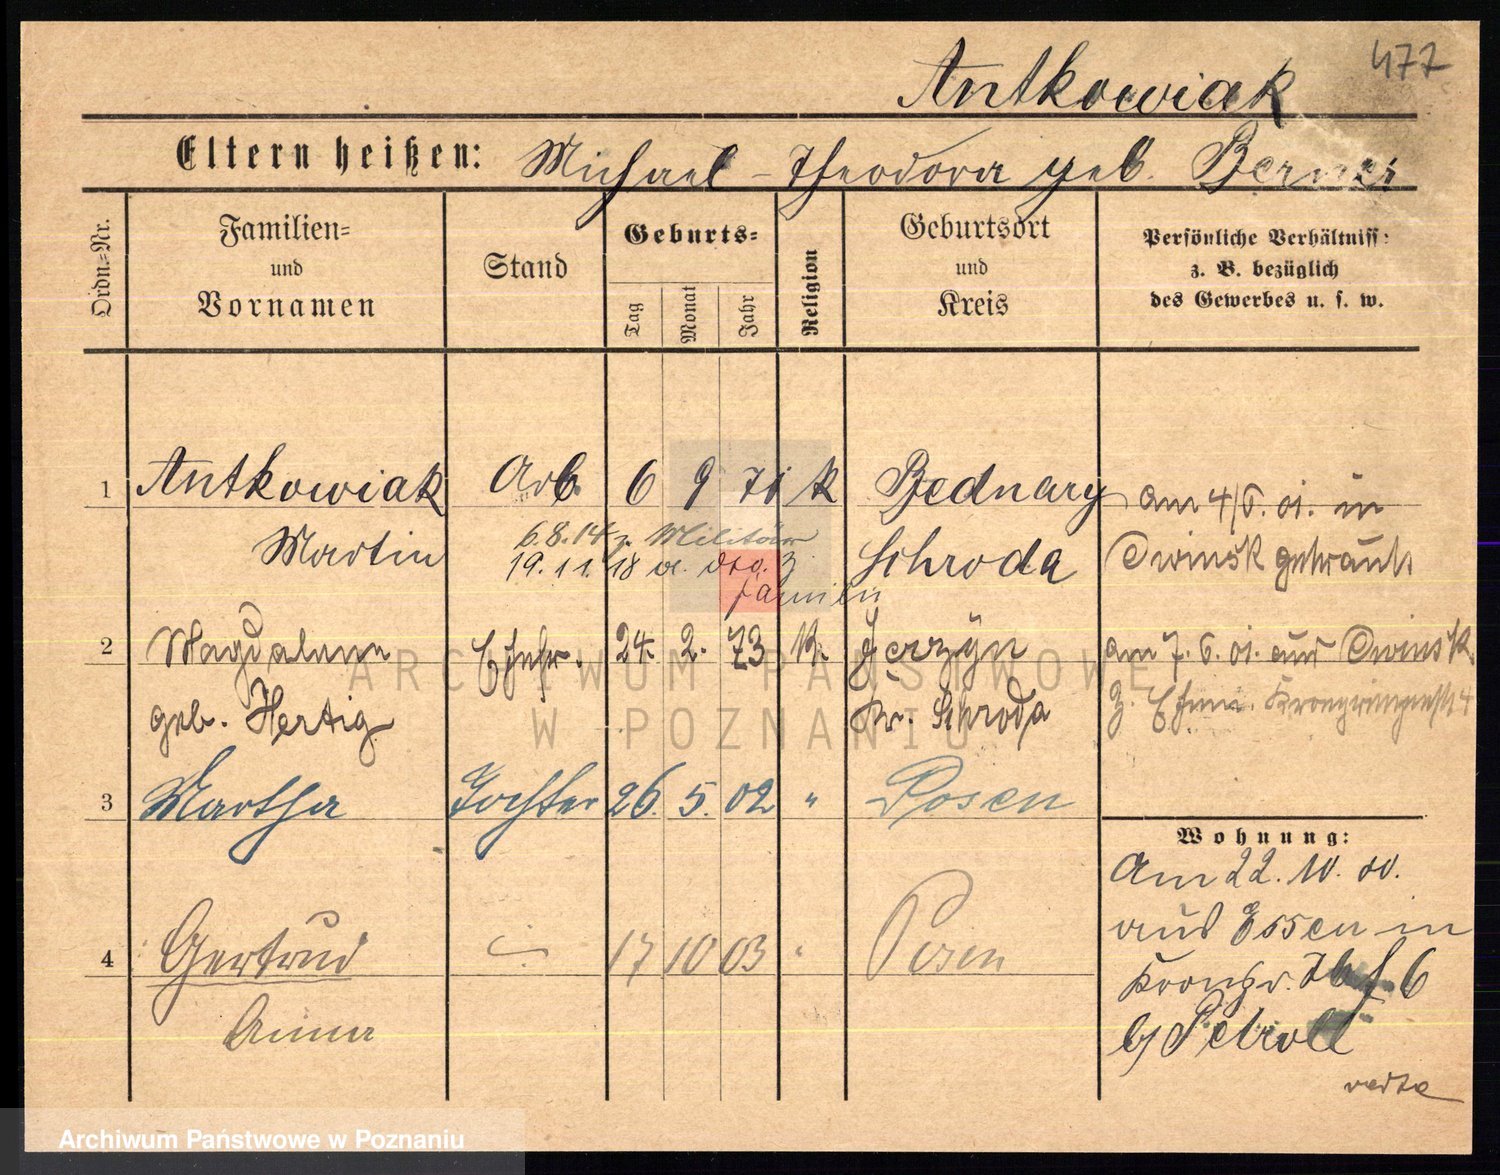 477
Antkowiak
Eltern heißen: Michael - Theodora geb. Berner
Ordn.=Nr.
Familien=
und
Vornamen
Stand
Geburts=
Tag
Monat
Jahr
Religion
Geburtsort
und
Kreis
Persönliche Verhältniss:
z. B. bezüglich
des Gewerbes u. s. w.
1 Antkowiak Arb 6 9 71 k Bednary am 4/6. 01. in
Martin 6.8.14 z. Militär Schroda Owinsk getraut.
19.11.18 v. dto. z
Familie
2 Magdalena Ehefr. 24. 2. 73 k. Jerzyn am 7. 6. 01. aus Owinsk
geb. Hertig Kr. Schroda z. Ehem. Kronprinzenstr 4
3 Martha Tochter 26. 5. 02 " Posen
Wohnung:
Am 22. 10. 00.
aus Essen in
Kronpr. 6
b/ Petroll
verte
4 Gertrud 17 10 03 " Posen
Anna
ARCHIWUM PAŃSTWOWE
W POZNANIU
Archiwum Państwowe w Poznaniu